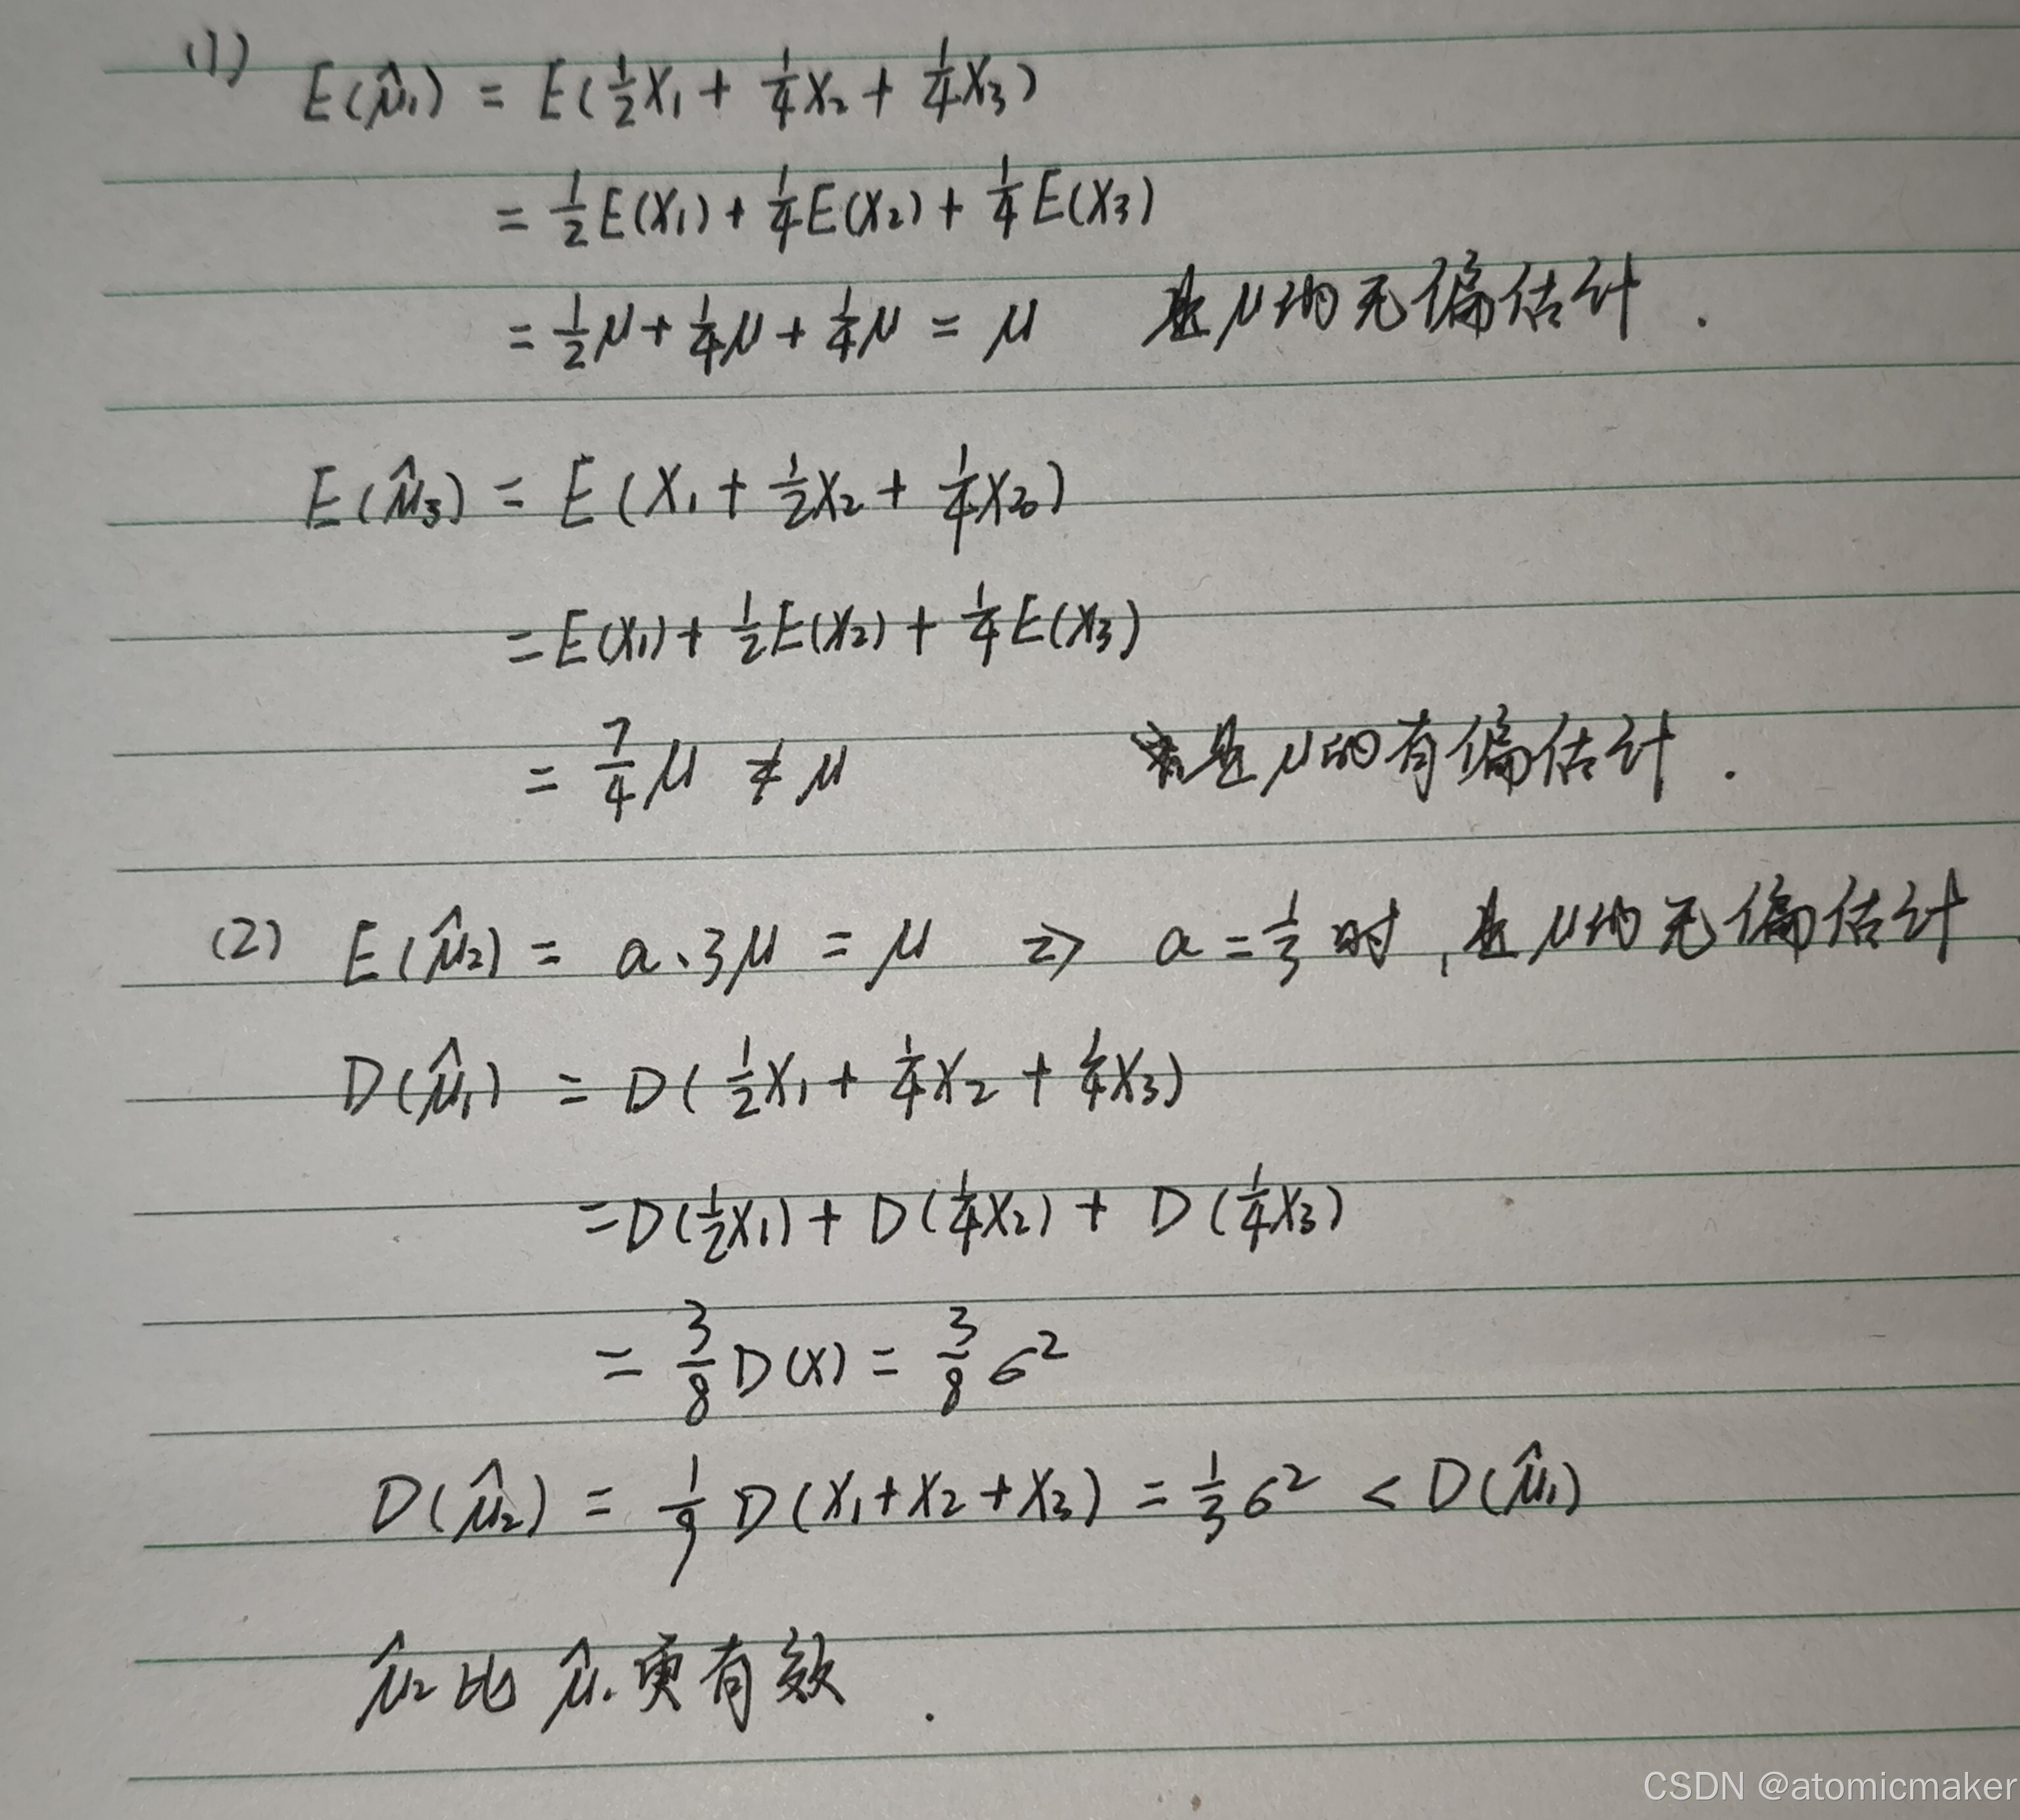 (1) E(μ̂₁) = E(½X₁ + ¼X₂ + ¼X₃)
= ½E(X₁) + ¼E(X₂) + ¼E(X₃)
= ½μ + ¼μ + ¼μ = μ 是μ的无偏估计.
E(μ̂₃) = E(X₁ + ½X₂ + ¼X₃)
= E(X₁) + ½E(X₂) + ¼E(X₃)
= 7/4 μ ≠ μ 是μ的有偏估计.
(2) E(μ̂₂) = a·3μ = μ ⇒ a = ⅓ 时, 是μ的无偏估计
D(μ̂₁) = D(½X₁ + ¼X₂ + ¼X₃)
= D(½X₁) + D(¼X₂) + D(¼X₃)
= ⅜D(X) = ⅜σ²
D(μ̂₂) = 1/9 D(X₁+X₂+X₃) = ⅓σ² < D(μ̂₁)
μ̂₂比μ̂₁更有效.
CSDN @atomicmaker